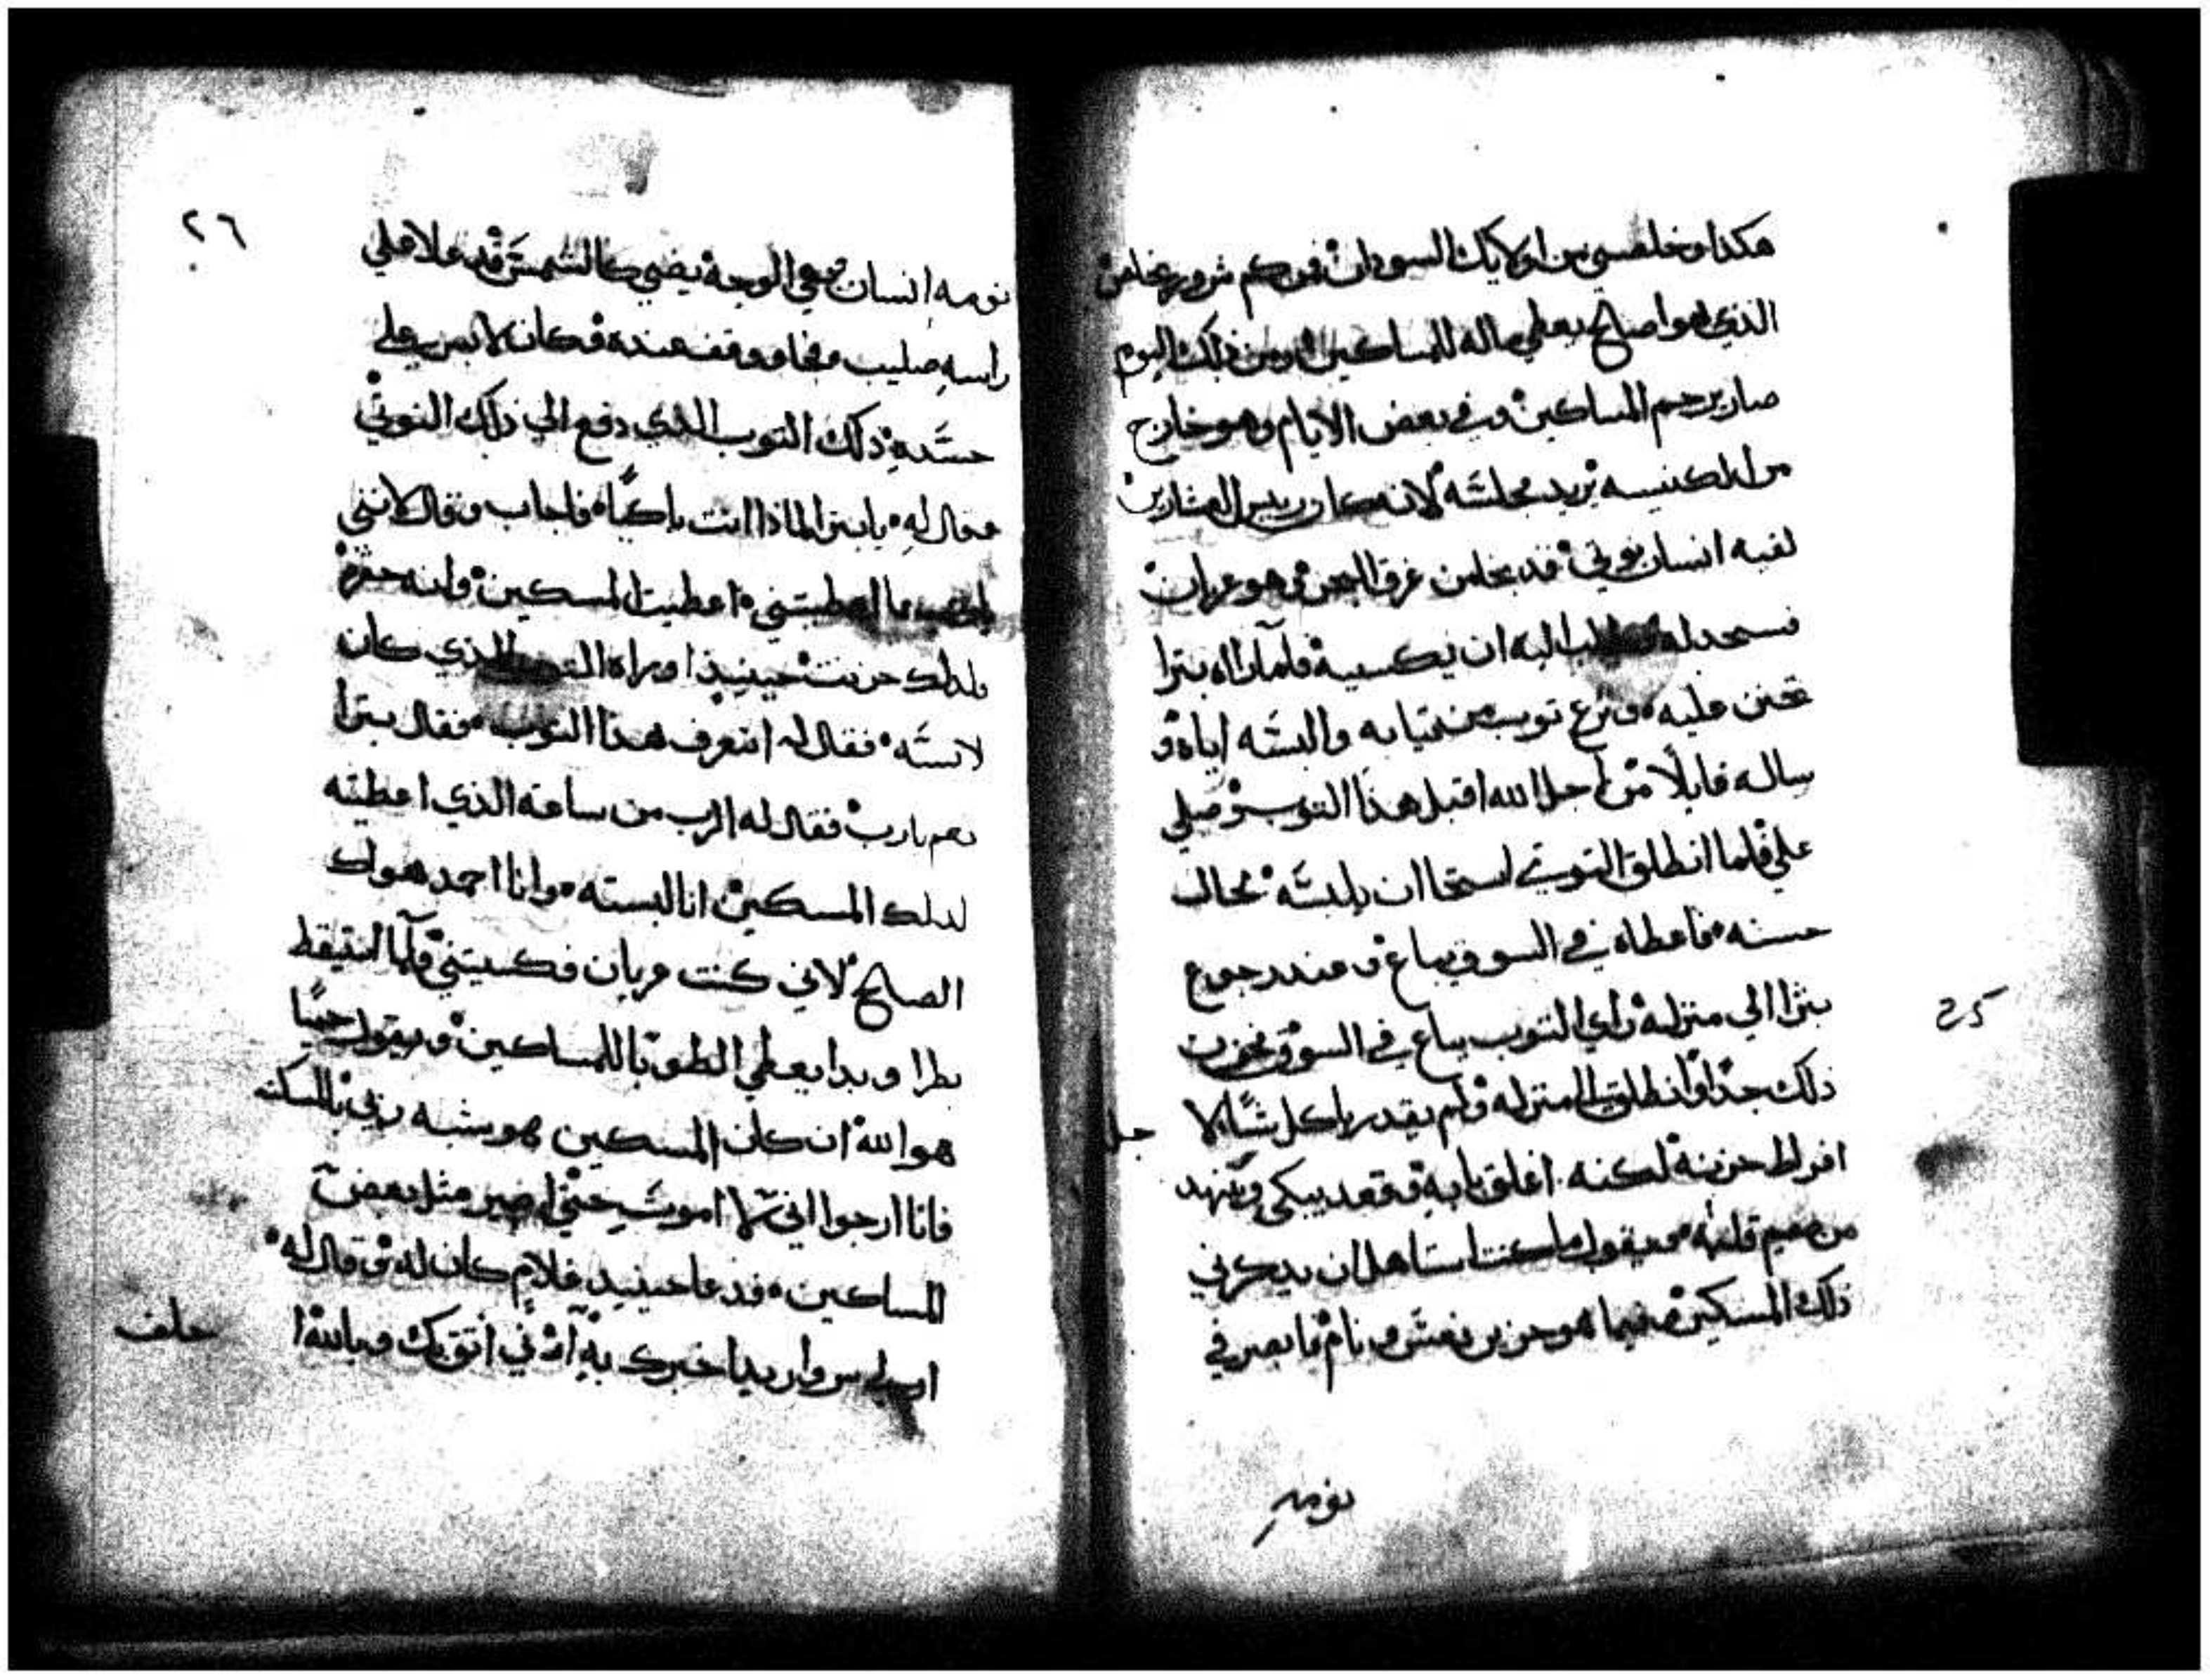 هكذا وخلصني من اولايك السودان فمن كم شرور يخلص
الذي هو اصالح يعطي ماله للمساكين ومن ذلك اليوم
صار يرحم المساكين وفي بعض الايام وهو خارج
من الكنيسه يريد مجلسه لانه كان ريس العشارين
لقيه انسان نوتي قد تخلص من غرق البحر وهو عريان
فسجد له وطلب اليه ان يكسيه فلما راه بترا
تحنن عليه ونزع توب من تيابه والبسه اياه و
ساله قايلًا من اجل الله اقبل هذا التوب وصلي
علي فلما انطلق النوتي استحا ان يلبسه بحال
حسنه فاعطاه في السوق يباع وعند رجوع
بترا الي منزله راي التوب يباع في السوق فحزن
ذلك جدًا وانطلق الي منزله ولم يقدر ياكل شيًا لا جل
افراط حزنه لكنه اغلق بابه وقعد يبكي ويتنهد
من صميم قلبه ويقول ما كنت استاهل ان يدكرني
ذلك المسكين وفيما هو حزين نعس ونام فابصر في
نومه
25
٢٦
نومه انسان بهي الوجه يضي كالشمس قد علا علي
راسه صليب وجا ووقف عنده وكان لابس علي
جسده ذلك التوب الذي دفع الي ذلك النوتي
وقال له يا بترا لماذا انت باكيًا فاجاب وقال لانني
يا رب ما اعطيتني اعطيت المسكين وانه حقره
ولدلك حزنت حينيذ اوراه التوب الذي كان
لابسه فقال له اتعرف هذا التوب فقال بترا
نعم يا رب فقال له الرب من ساعة الذي اعطيته
لدلك المسكين انا لبسته وانا احمد هواك
الصالح لاني كنت عريان فكسيتني فلما استيقظ
بطرا وبدا يعطي الطوبا للمساكين ويقول حيًا
هو الله ان كان المسكين هو يشبه ربي بالمسكنه
فانا ارجوا اني لا اموت حتي اصير مثل بعض
المساكين فدعا حينيد غلام كان له وقال له
اريد اخبرك به اني اتق بك وبالله ا
حلف